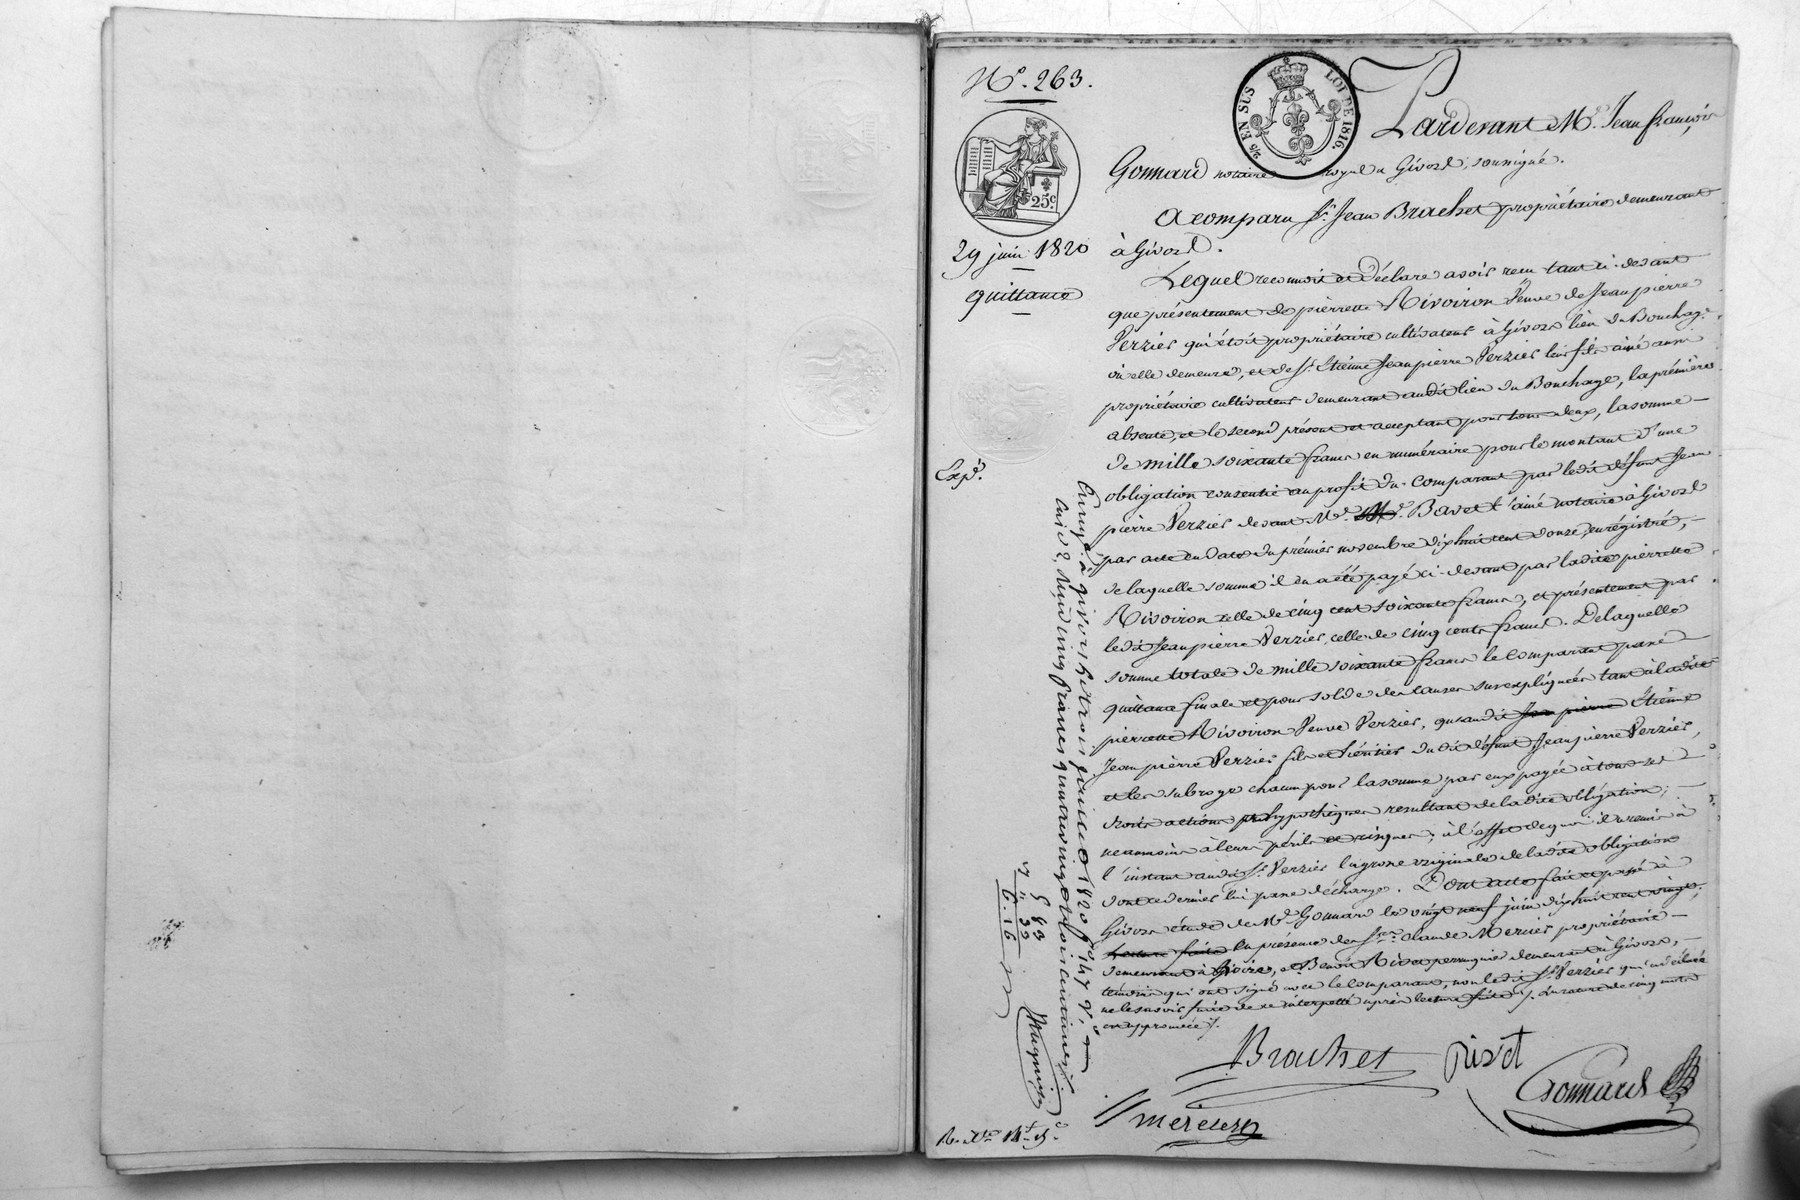 N.º 263.
2/5 EN SUS LOI DE 1816.
25.c
29 juin 1820
quittance
Expé.
Pardevant Me. Jean françois
Gonnard notaire royal à Givors, soussigné.
A comparu Sr. Jean Brachet propriétaire demeurant
à Givors.
Lequel reconnoit et déclare avoir reçu tant ci-devant
que présentement de pierrette Rivoiron Veuve de Jean pierre
Verzier qui étoit propriétaire cultivateur à Givors lieu du Bouchage
où elle demeure, et de Sr. Etienne Jean pierre Verzier leur fils ainé aussi
propriétaire cultivateur demeurant audit lieu du Bouchage, la prémière
absente, et le second présent et acceptant pour tous deux, la somme
de mille soixante francs en numéraire pour le montant d'une
obligation consentie au profit du comparant par ledit défunt Jean
pierre Verzier devant Me. Me. Bavet l'ainé notaire à Givors
par acte en date du prémier novembre dix huit cent douze, enrégistré,
de laquelle somme il en a été payé ci-devant par ladite pierrette
Rivoiron celle de cinq cent soixante francs, et présentement par
ledit Jean pierre Verzier celle de cinq cents francs. De laquelle
somme totale de mille soixante francs le comparant passe
quittance finale et pour solde des causes surexpliquées tant à ladite
pierrette Rivoiron Veuve Verzier, qu'audit Jean pierre Etiènne
Jean pièrre Verzier fils et héritier dudit défunt Jean pierre Verzier,
et les subroge chacun pour la somme par eux payée à tous ses
droits actions hypothèques résultant de ladite obligation;
néanmoins à leurs périls et risques; à l'effet de quoi il a remis à
l'instant audit Sr. Verzier la grosse originale de ladite obligation
dont ce dernier lui passe décharge. Dont acte fait et passé à
Givors étude de Me. Gonnard le vingt neuf juin dix huit cent vingt,
Lecture faite En présence de Srs. Claude Mercier propriétaire
demeurant à Givors, et Benoit Rivet perruquier demeurant à Givors,
témoins qui ont signé avec le comparant, non ledit Sr. Verzier qui a déclaré
ne le savoir faire de ce interpellé après lecture faite. La rature de cinq mots
est approuvée.
Brachet Rivet
Gonnard
Mercier
Enregé. à givors le trois juillet 1820 fo. 47 Vo. Co
reçu cinq francs quatrevingt trois centimes
5 83
" 33
6.16